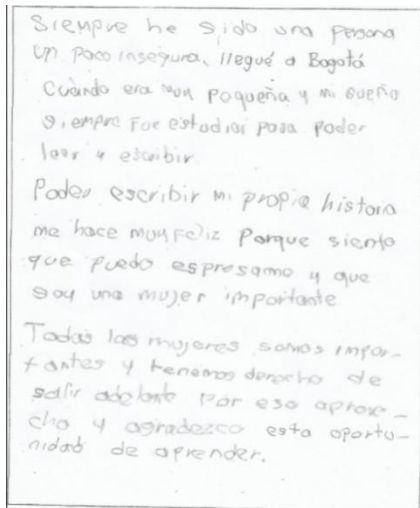 Siempre he sido una persona
un poco insegura, llegué a Bogotá
Cuándo era muy poqueña y mi sueño
siempre Fue estudiar para Poder
leer y escribir
Poder escribir mi propia historia
me hace muy Feliz Porque siento
que puedo espresarme y que
soy una mujer importante
Todas las mujeres somos impor-
tantes y tenemos derecho de
salir adelante Por eso aprove-
cho y agradezco esta oportu-
nidad de aprender.